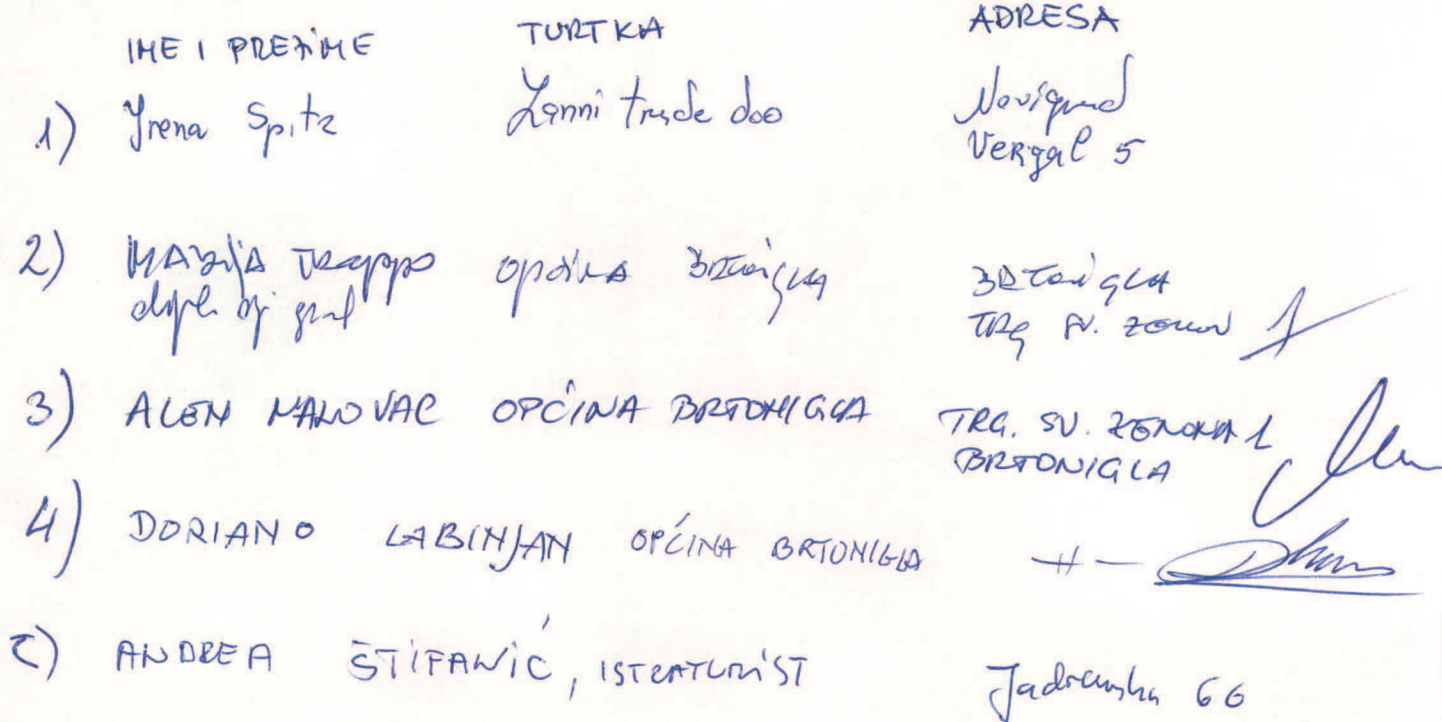 IME I PREZIME TVRTKA ADRESA
1) Irena Spitz Zanni trade doo Novigrad
Vergal 5
2) MARIJA općina BRTONIGLA BRTONIGLA
TRG SV. ZENONA 1
3) ALEN MANOVAC OPĆINA BRTONIGLA TRG. SV. ZENONA 1
BRTONIGLA
4) DORIANO LABINJAN OPĆINA BRTONIGLA -II-
5) ANDREA ŠTIFANIĆ, ISTRATURIST Jadranska 66